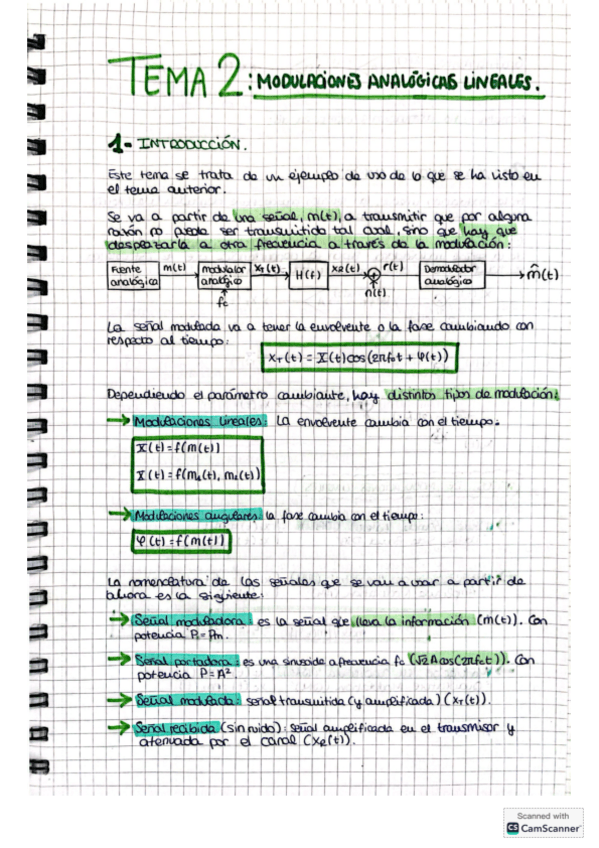 TEMA 2: MODULACIONES ANALÓGICAS LINEALES.
1- INTRODUCCIÓN.
Este tema se trata de un ejemplo de uso de lo que se ha visto en
el tema anterior.
Se va a partir de una señal, m(t), a transmitir que por alguna
razón no puede ser transmitida tal cual, sino que hay que
desplazarla a otra frecuencia a través de la modulación:
Fuente analógica m(t) modulador analógico xT(t) H(f) xR(t) r(t) Demodulador analógico m̂(t)
fc n(t)
La señal modulada va a tener la envolvente o la fase cambiando con
respecto al tiempo:
xT(t) = X(t)cos(2πf₀t + φ(t))
Dependiendo el parámetro cambiante, hay distintos tipos de modulación:
→ Modulaciones lineales: La envolvente cambia con el tiempo:
X(t) = f(m(t))
X(t) = f(m₁(t), m₂(t))
→ Modulaciones angulares: la fase cambia con el tiempo:
φ(t) = f(m(t))
La nomenclatura de las señales que se van a usar a partir de
ahora es la siguiente:
→ Señal moduladora: es la señal que lleva la información (m(t)). Con
potencia P=Pm.
→ Señal portadora: es una sinusoide a frecuencia fc (√2Acos(2πfct)). Con
potencia P=A²
→ Señal modulada: señal transmitida (y amplificada) (xT(t)).
→ Señal recibida (sin ruido): señal amplificada en el transmisor y
atenuada por el canal (xR(t)).
Scanned with
CS CamScanner